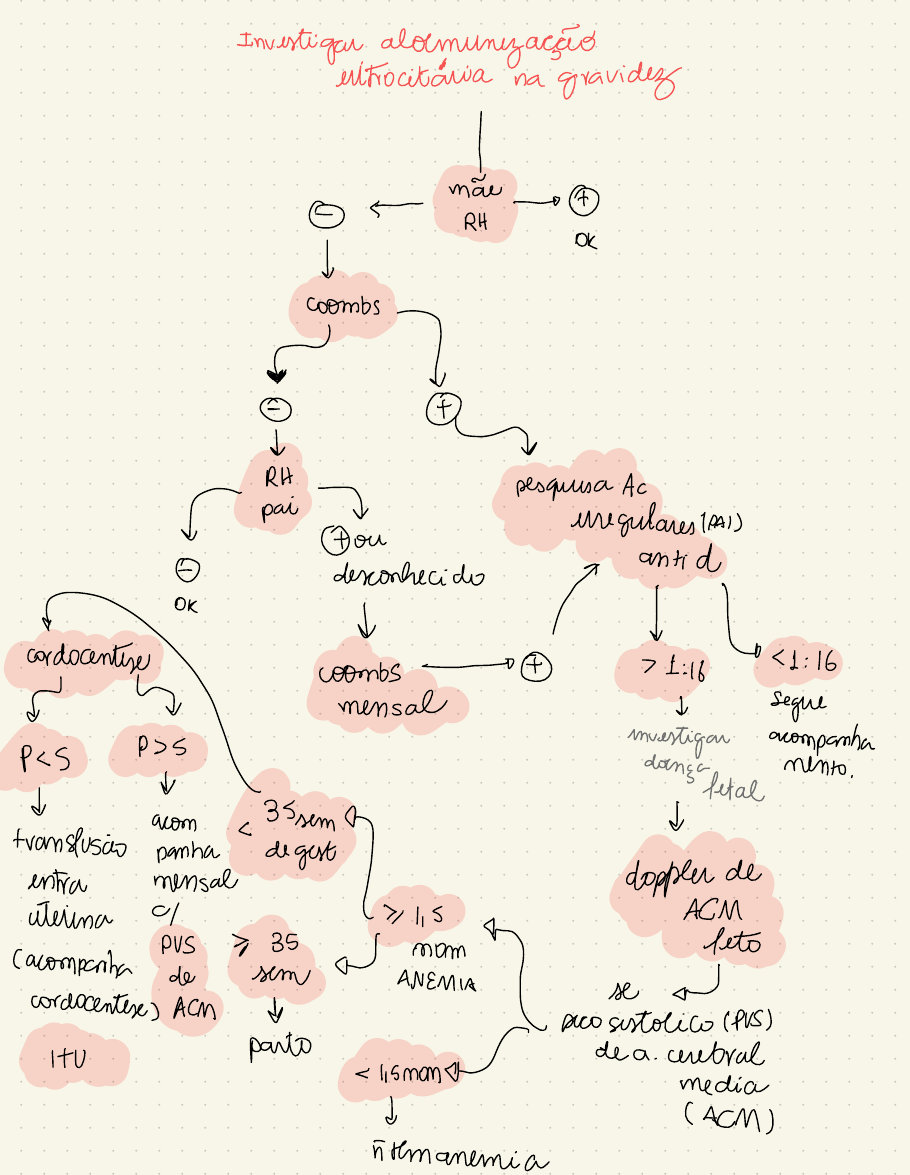 Investigar aloimunização
eritrocitária na gravidez
mãe
RH
-
+
OK
coombs
-
+
RH
pai
-
OK
+ ou
desconhecido
coombs
mensal
+
pesquisa Ac
irregulares (PAI)
anti d
> 1:16
< 1:16
segue
acompanha
mento.
investigar
doença
fetal
doppler de
ACM
feto
se
pico sistolico (PVS)
de a. cerebral
media
(ACM)
≥ 1,5
mom
ANEMIA
< 1,5 mom
ñ tem anemia
< 35 sem
de gest
≥ 35
sem
parto
cordocentese
P < 5
transfusão
intra
uterina
(acompanha
cordocentese)
ITU
P > 5
acom
panha
mensal
c/
PVS
de
ACM